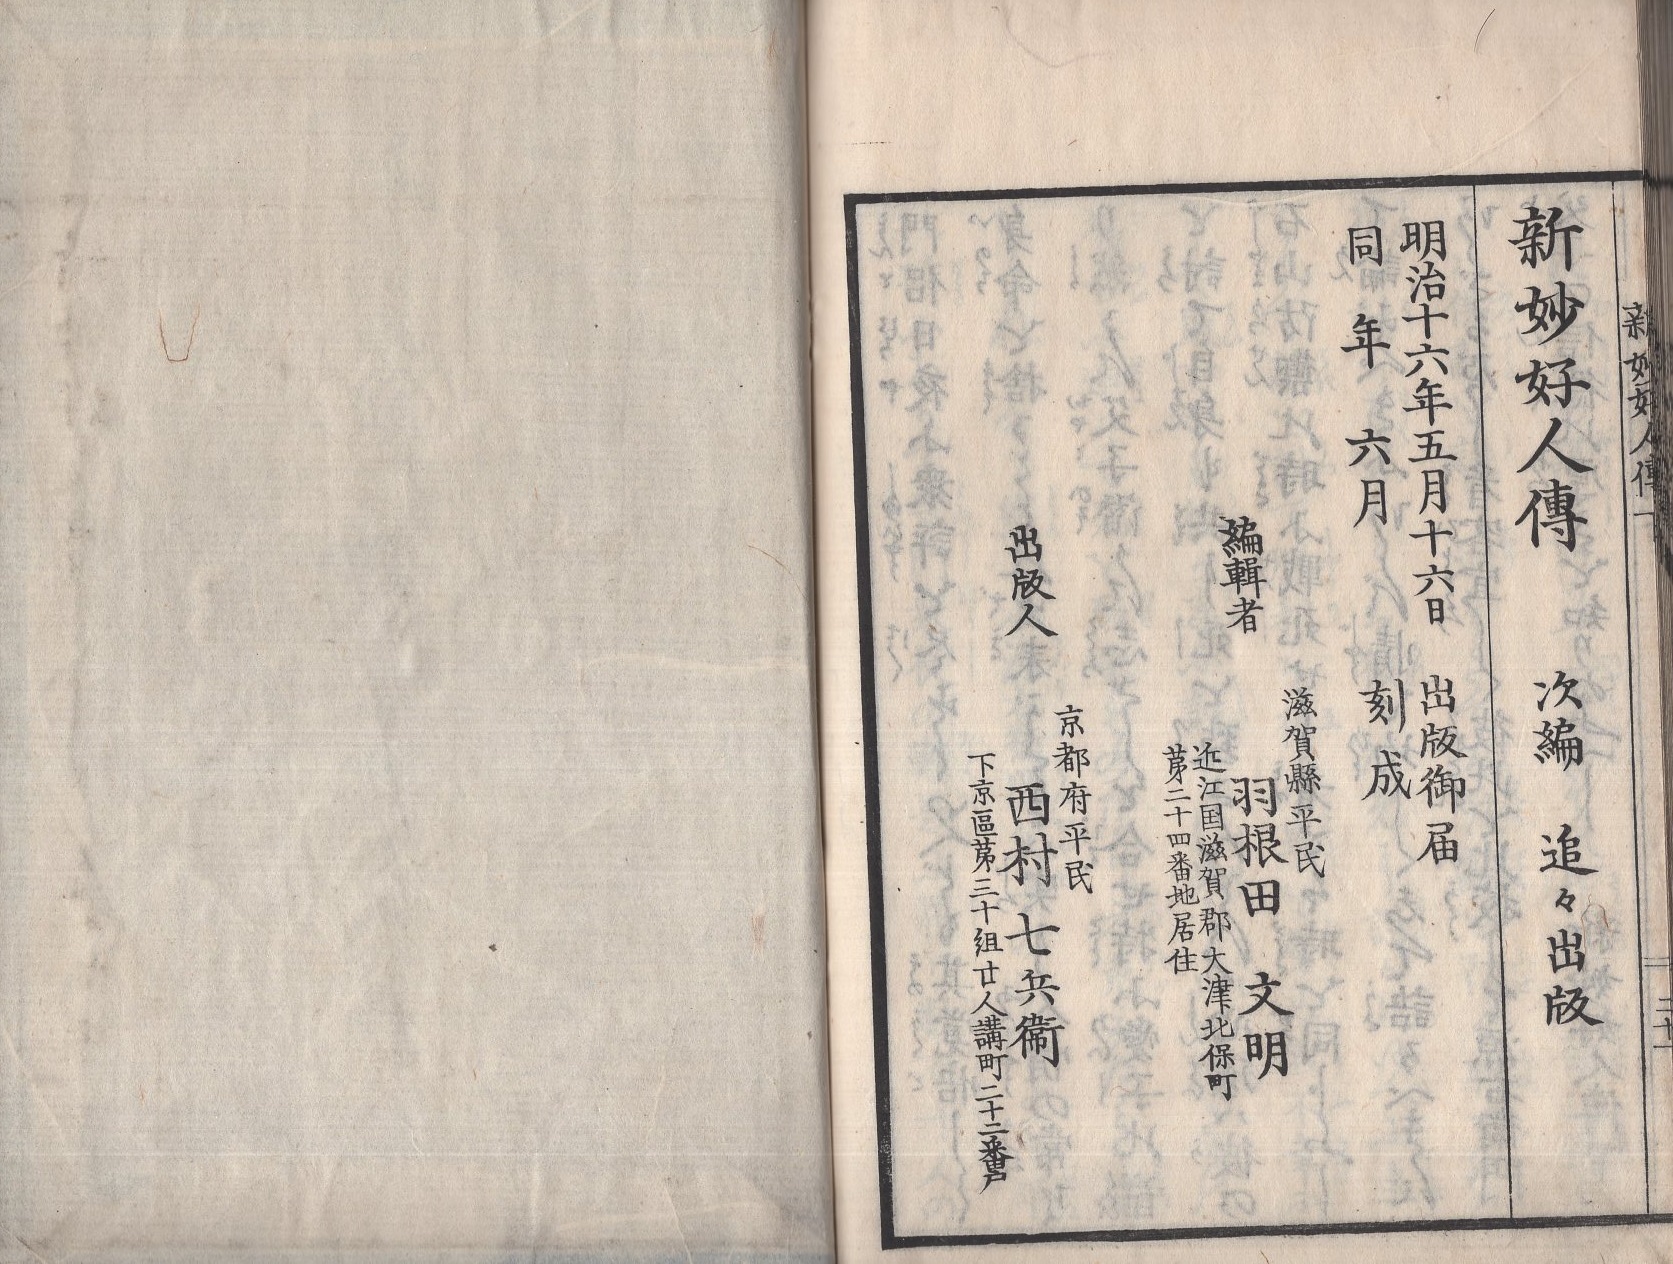 新妙好人傳
新妙好人傳　次編　追々出版
明治十六年五月十六日　出版御届
同年六月　刻成
滋賀縣平民
編輯者　羽根田文明
近江国滋賀郡大津北保町
苐二十四番地居住
京都府平民
出版人　西村七兵衞
下京區苐三十組廿人講町二十二番戸